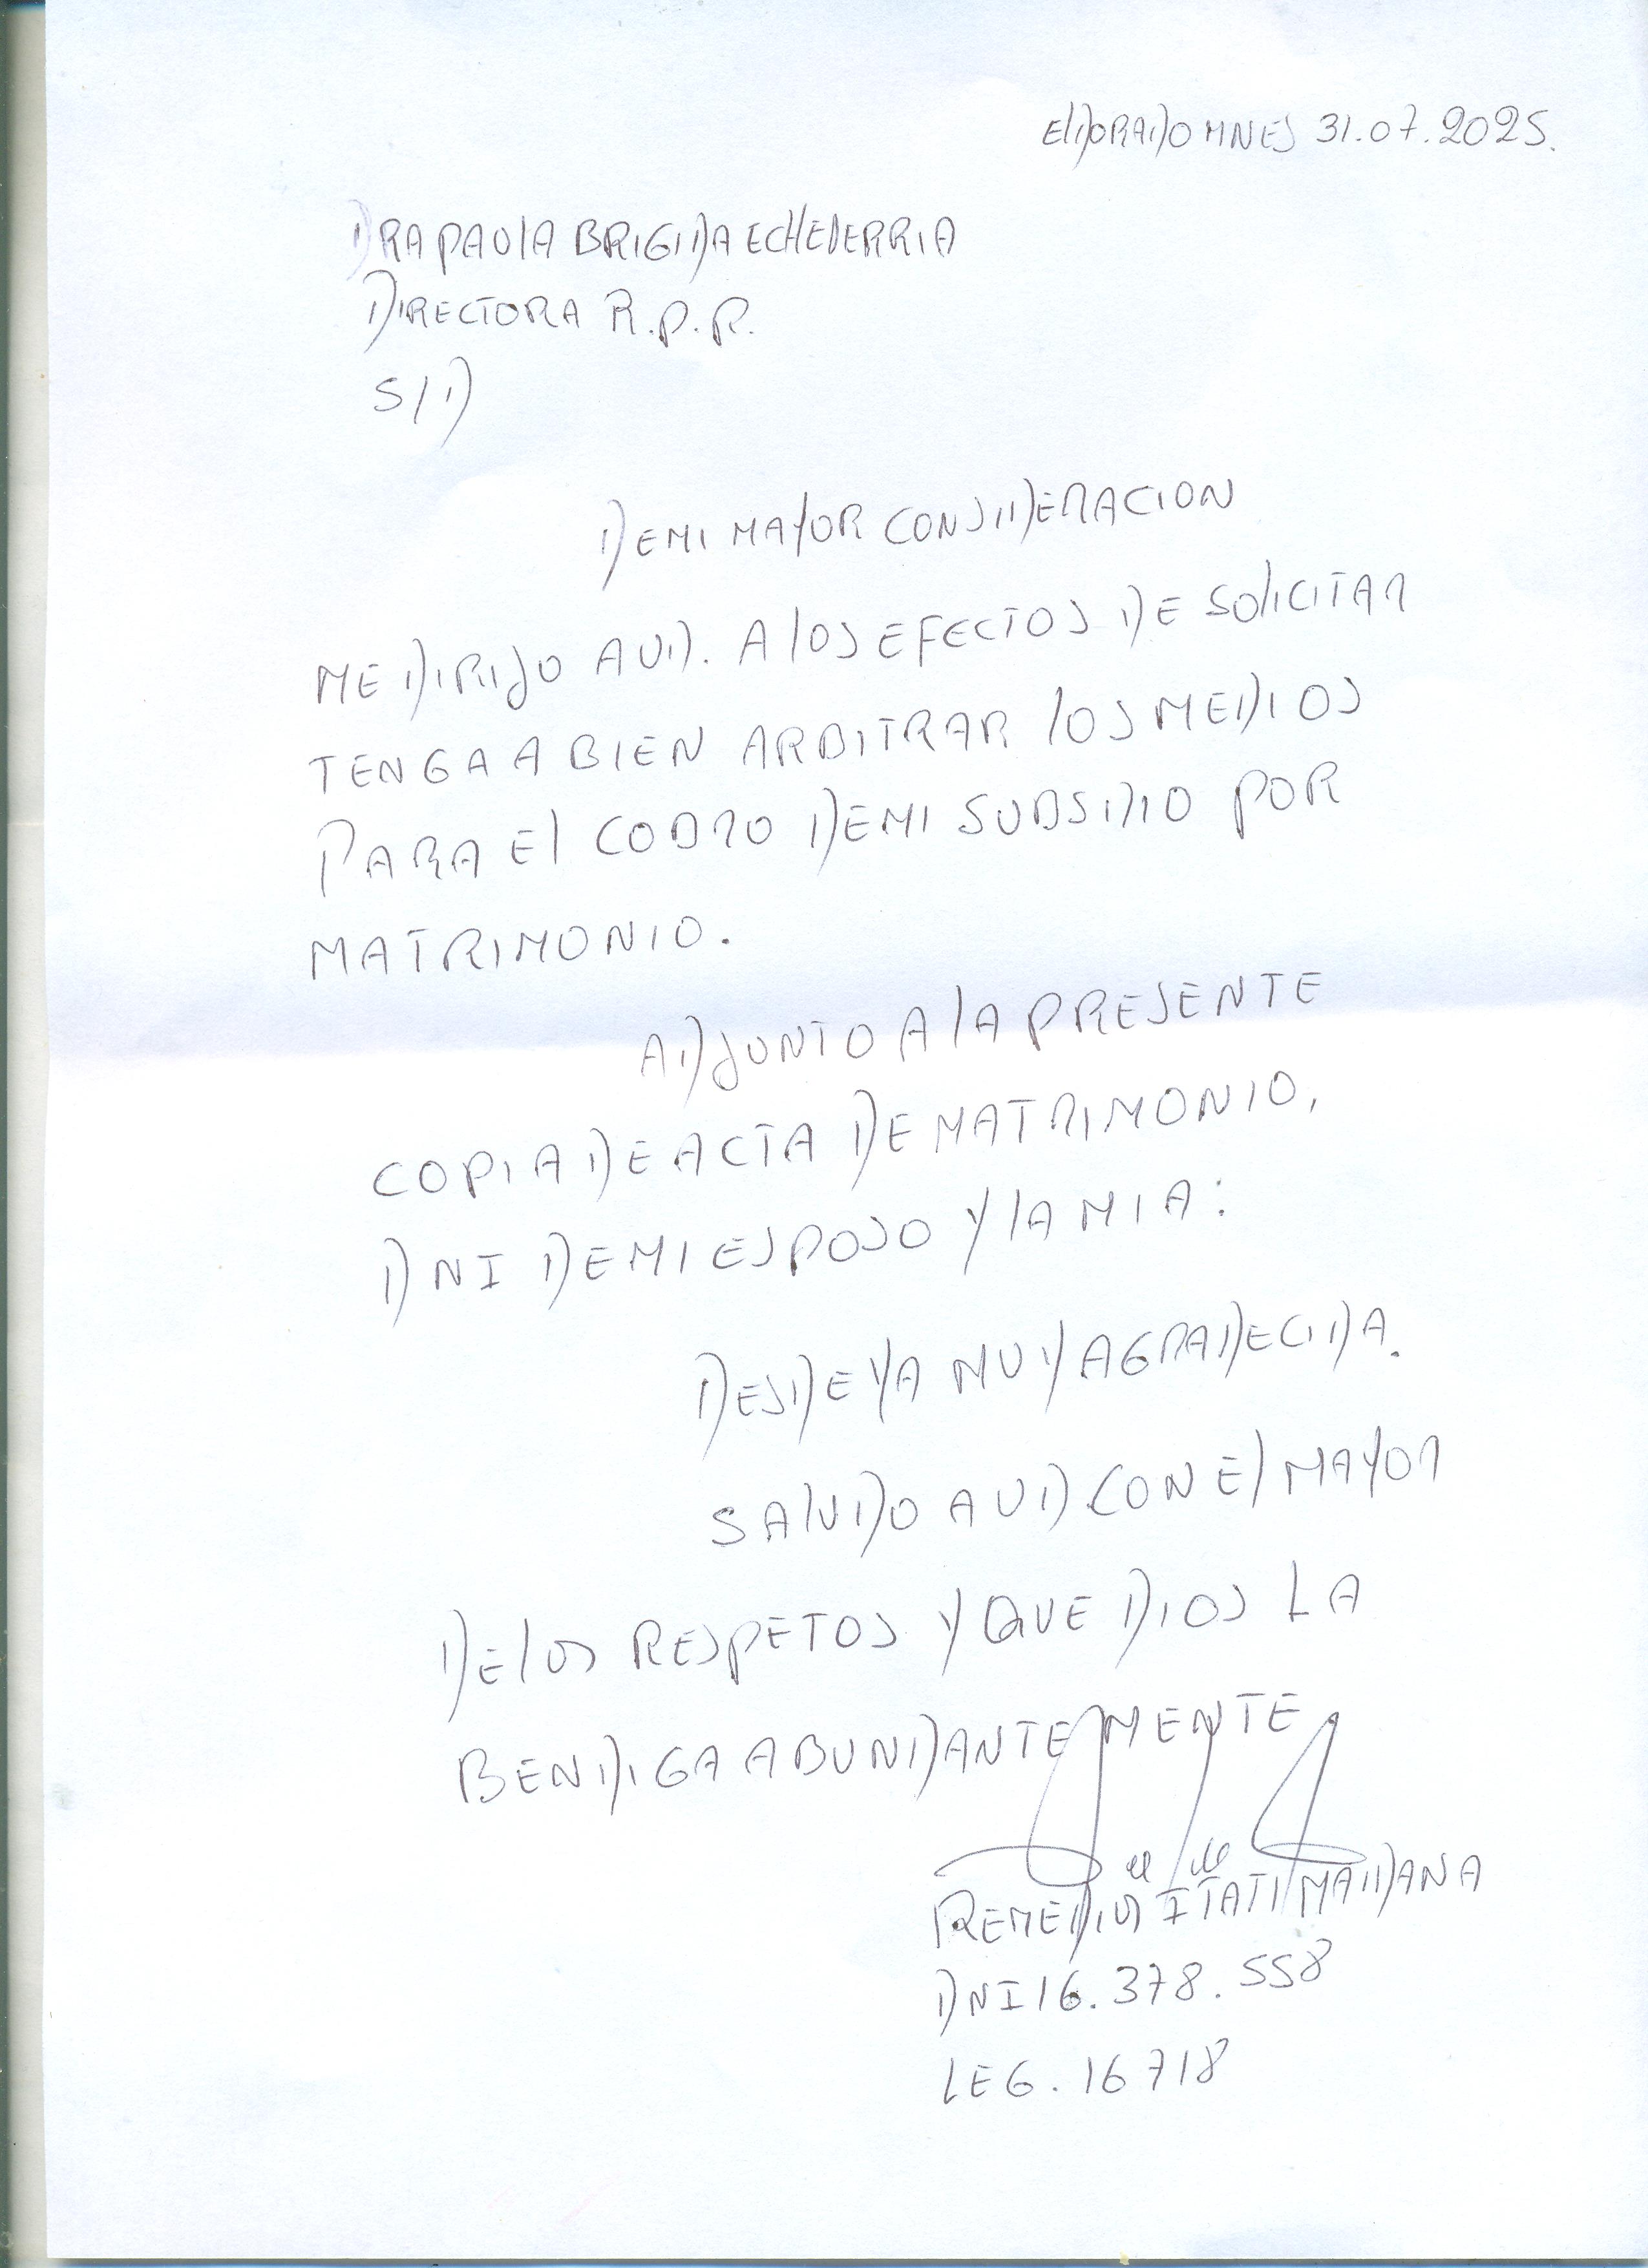 ElDORADO MNES 31.07.2025.
DRA PAUlA BRIGIDA ECHEVERRIA
DIRECTORA R.P.R.
S/D
DE MI MAYOR CONSIDERACION
ME DIRIJO A UD. A lOS EFECTOS DE SOlICITAR
TENGA A BIEN ARBITRAR lOS MEDIOS
PARA El COBRO DE MI SUBSIDIO POR
MATRIMONIO.
ADJUNTO A lA PRESENTE
COPIA DE ACTA DE MATRIMONIO,
DNI DE MI ESPOSO Y lA MIA:
DESDE YA MUY AGRADECIDA.
SAlUDO A UD CON El MAYOR
DE lOS RESPETOS Y QUE DIOS LA
BENDIGA ABUNDANTEMENTE
REMEDIOS ITATI MAIDANA
DNI 16.378.558
LEG. 16718